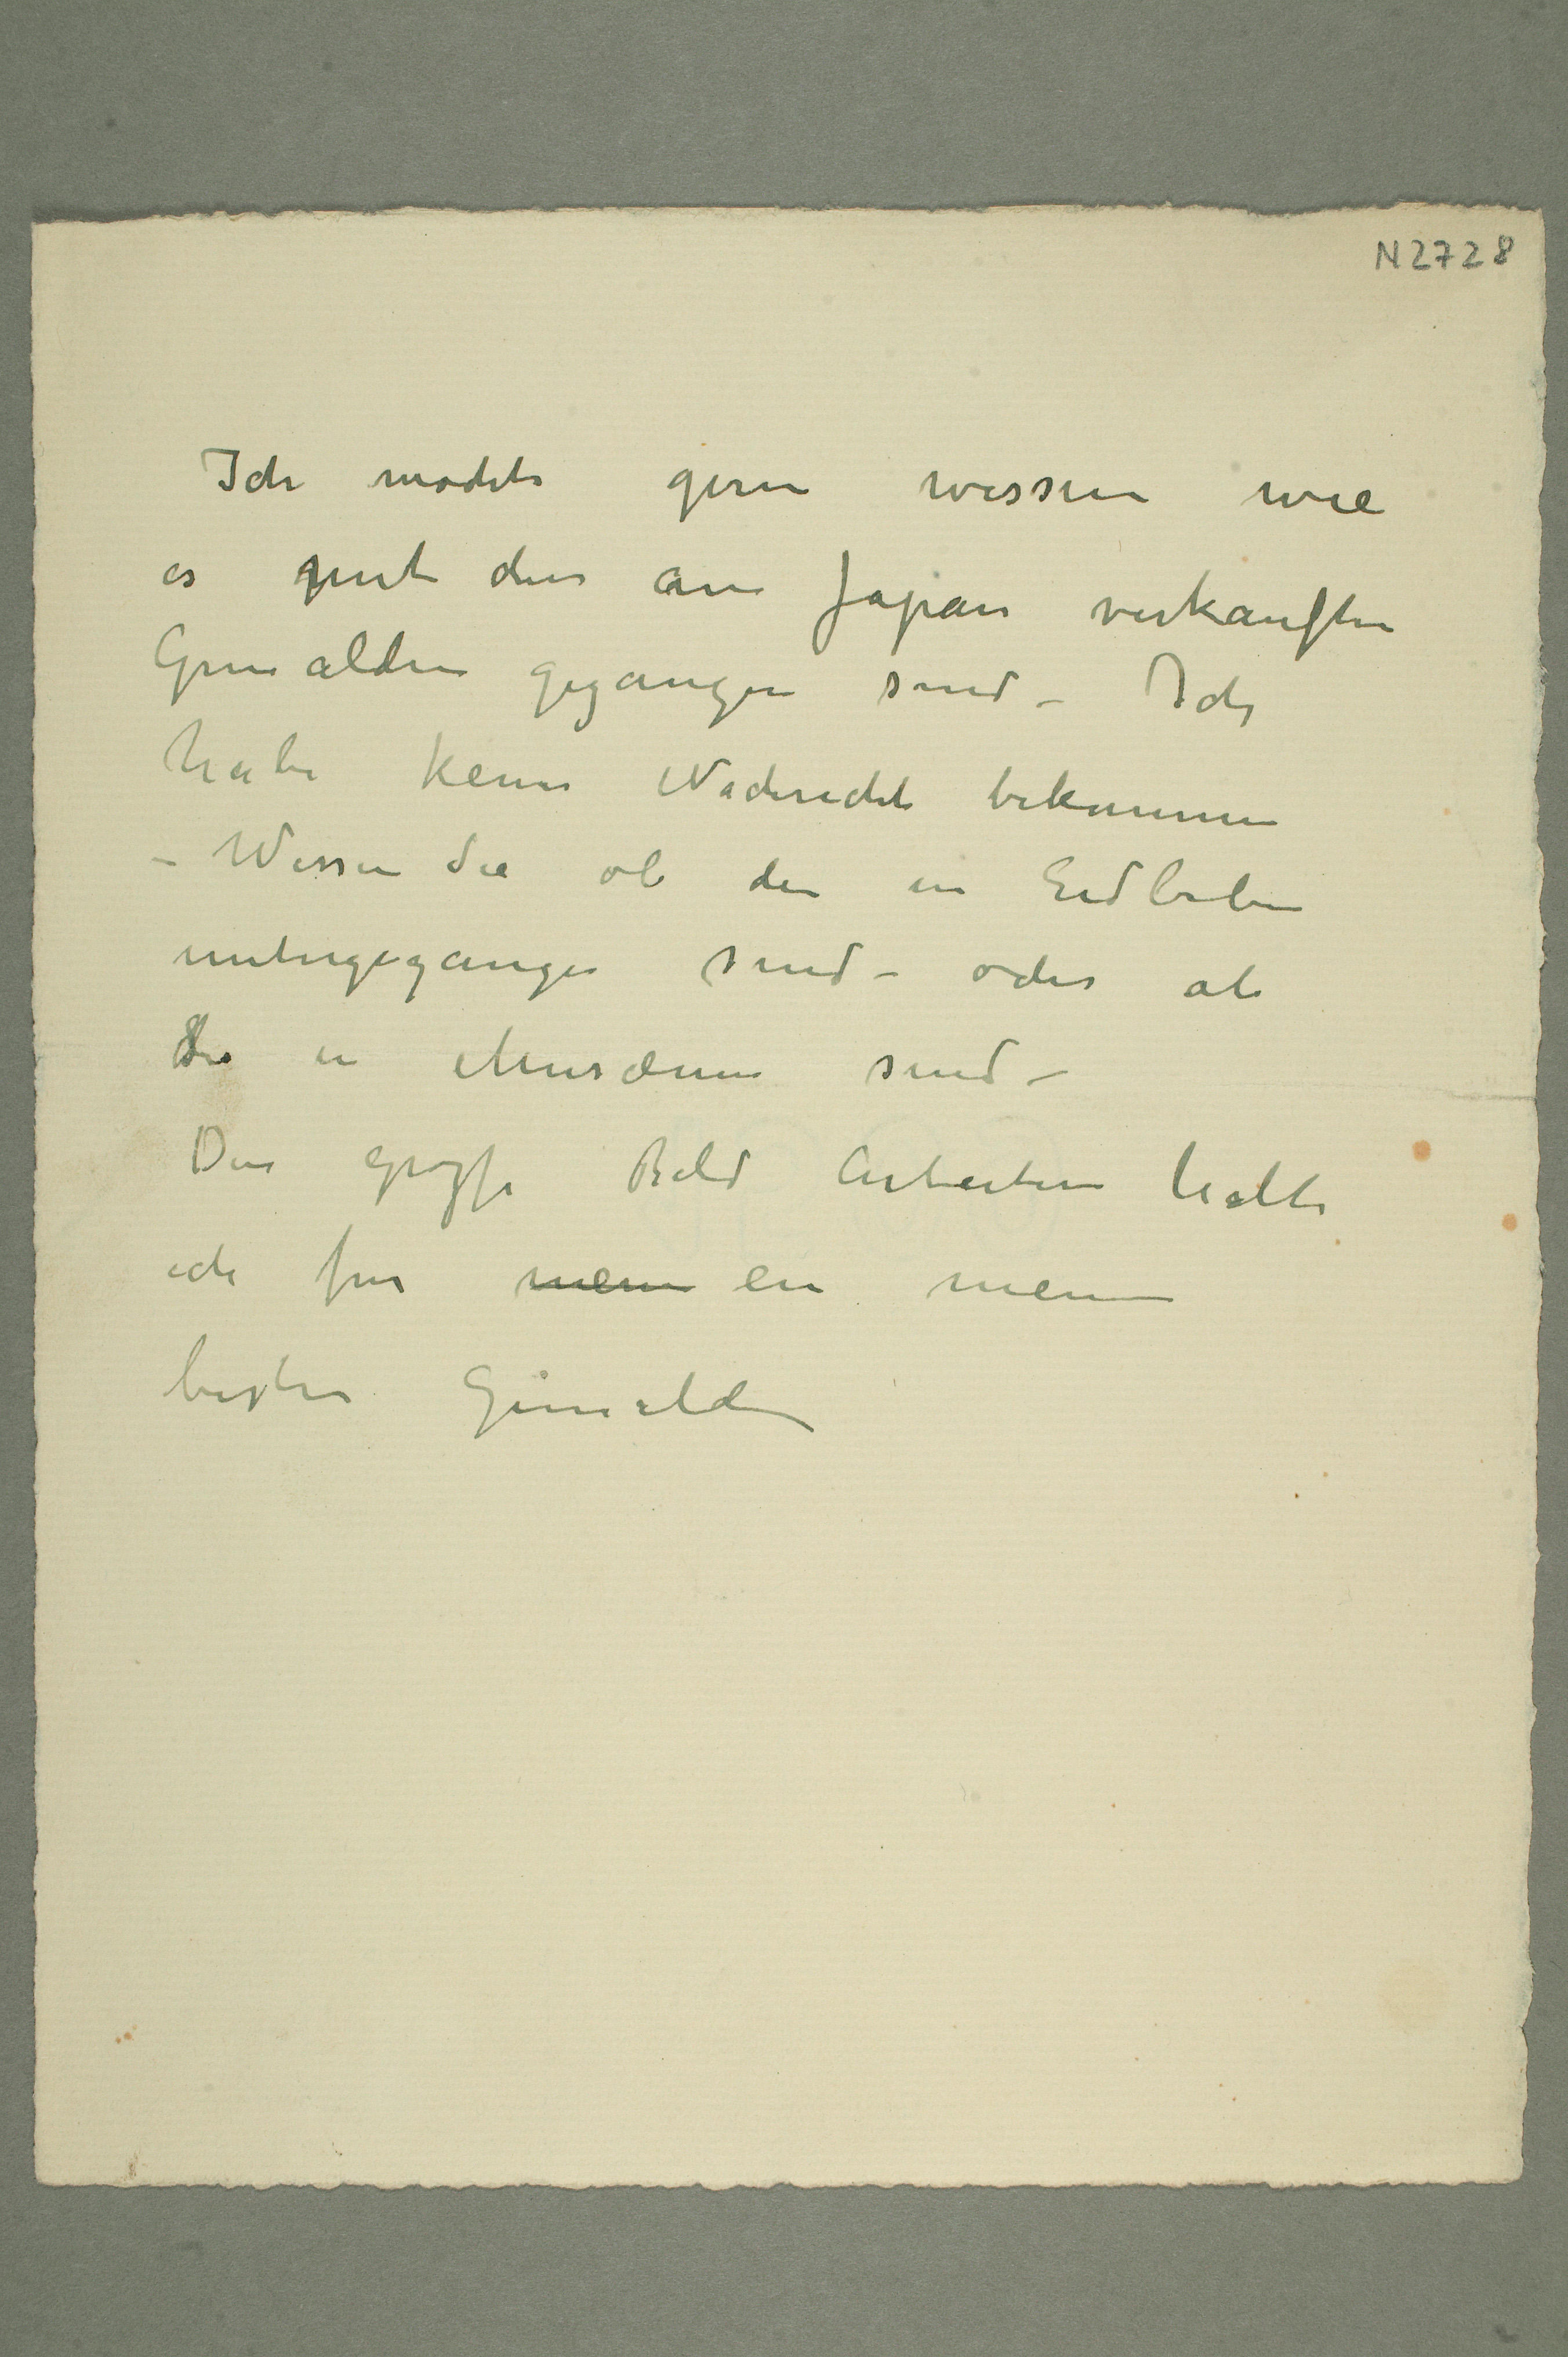 N 2728
Ich mochte gern wissen wie
es mit den an Japan verkauften
Gemälden gegangen sind – Ich
habe keine Nachricht bekommen
– Wissen Sie ob die in Erdbeben
untergegangen sind – oder ob
Sie in Musæum sind –
Das grosse Bild Arbeiter halte
ich fur mein ein meine
bester Gemälden